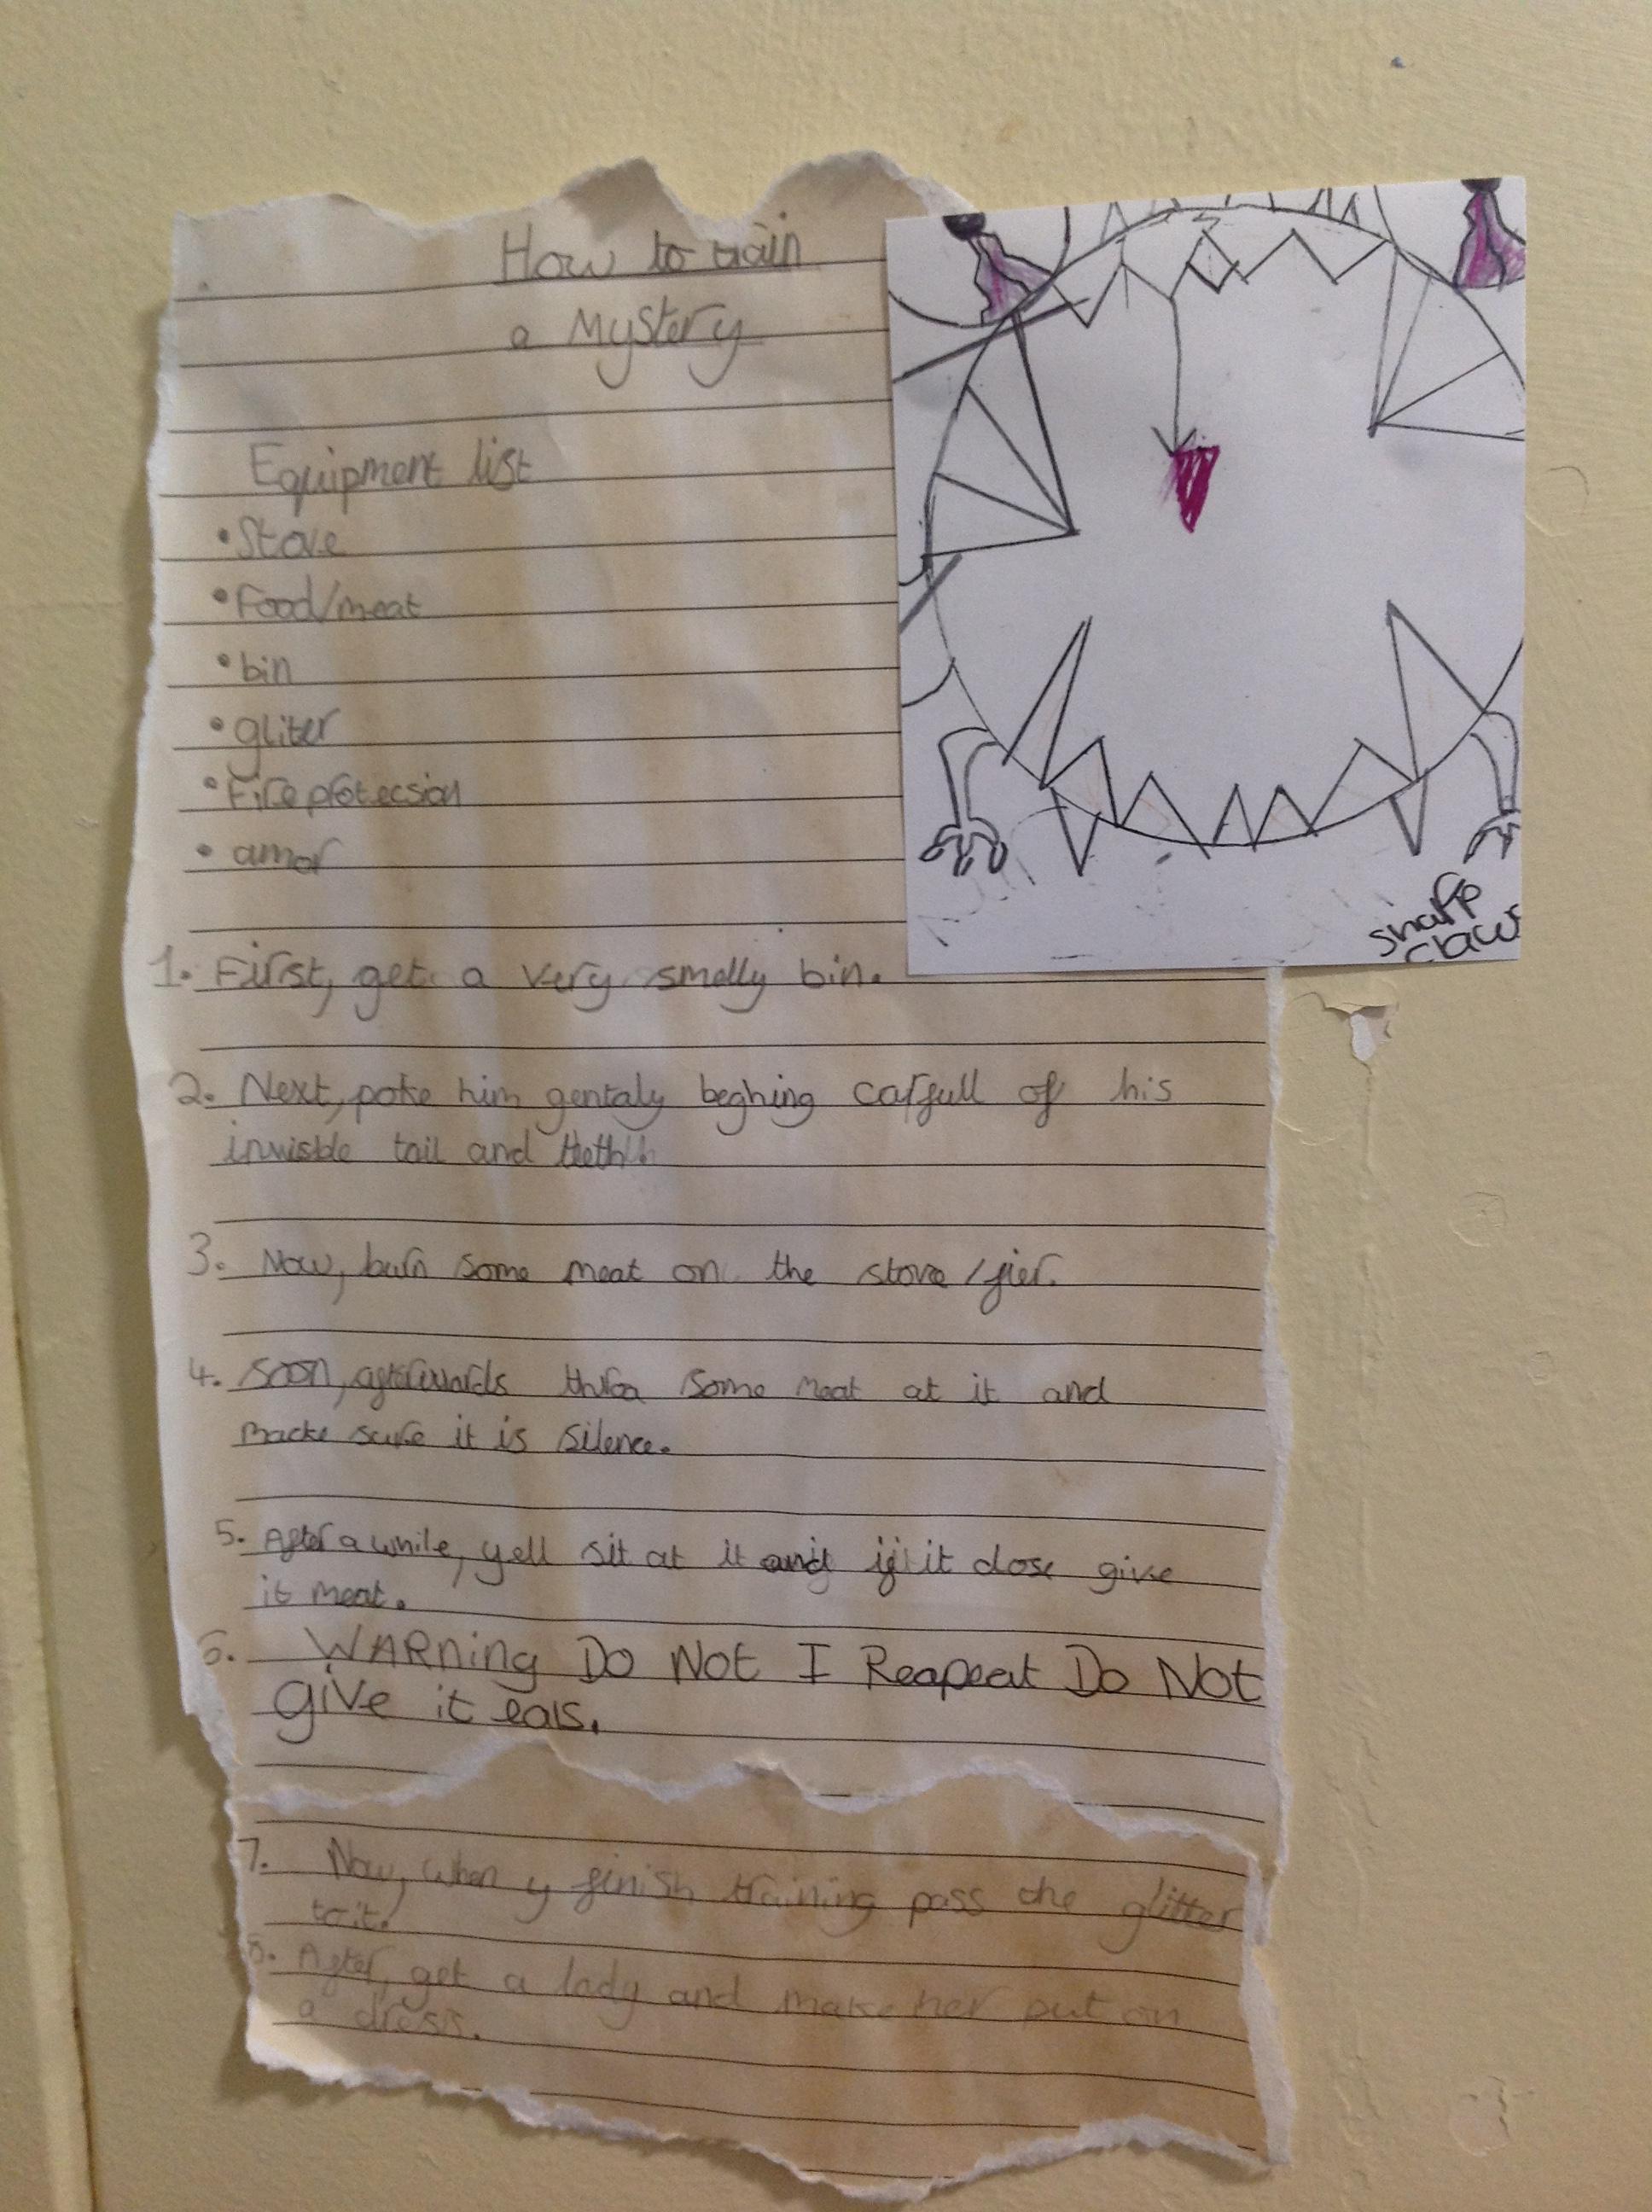 How to train
a Mystery
Equipment list
• Stove
• Food/meat
• bin
• gliter
• Fire protecsion
• amor
sharp
claws
1. First, get a very smelly bin.
2. Next, poke him gentaly beghing carfull of his
invisble tail and teeth!!
3. Now, burn some meat on the stove / fier.
4. Soon, afterwards throa some meat at it and
macke sure it is silence.
5. After a while, yell sit at it and if it dose give
it meat.
6. WARNing Do Not I Reapeat Do Not
give it eals.
7. Now, when y finish training pass the glitter
to it.
8. After, get a lady and make her put on
a dress.